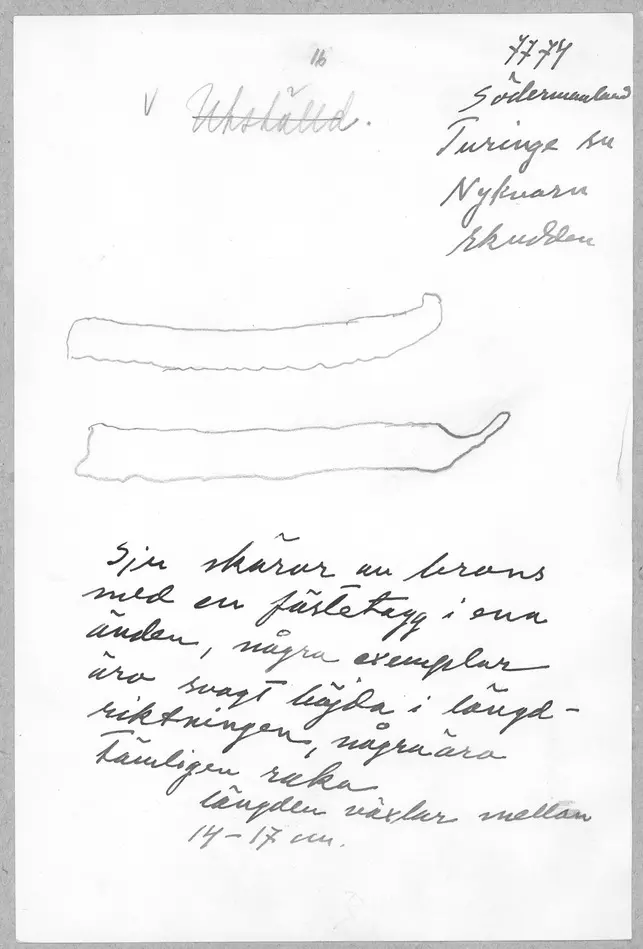 16
7774
v Utställd.
Södermanland
Turinge sn
Nykvarn
Ekudden
Sju skäror av brons
med en fästetagg i ena
änden, några exemplar
äro svagt böjda i längd-
riktningen, några äro
tämligen raka
längden växlar mellan
14-17 cm.